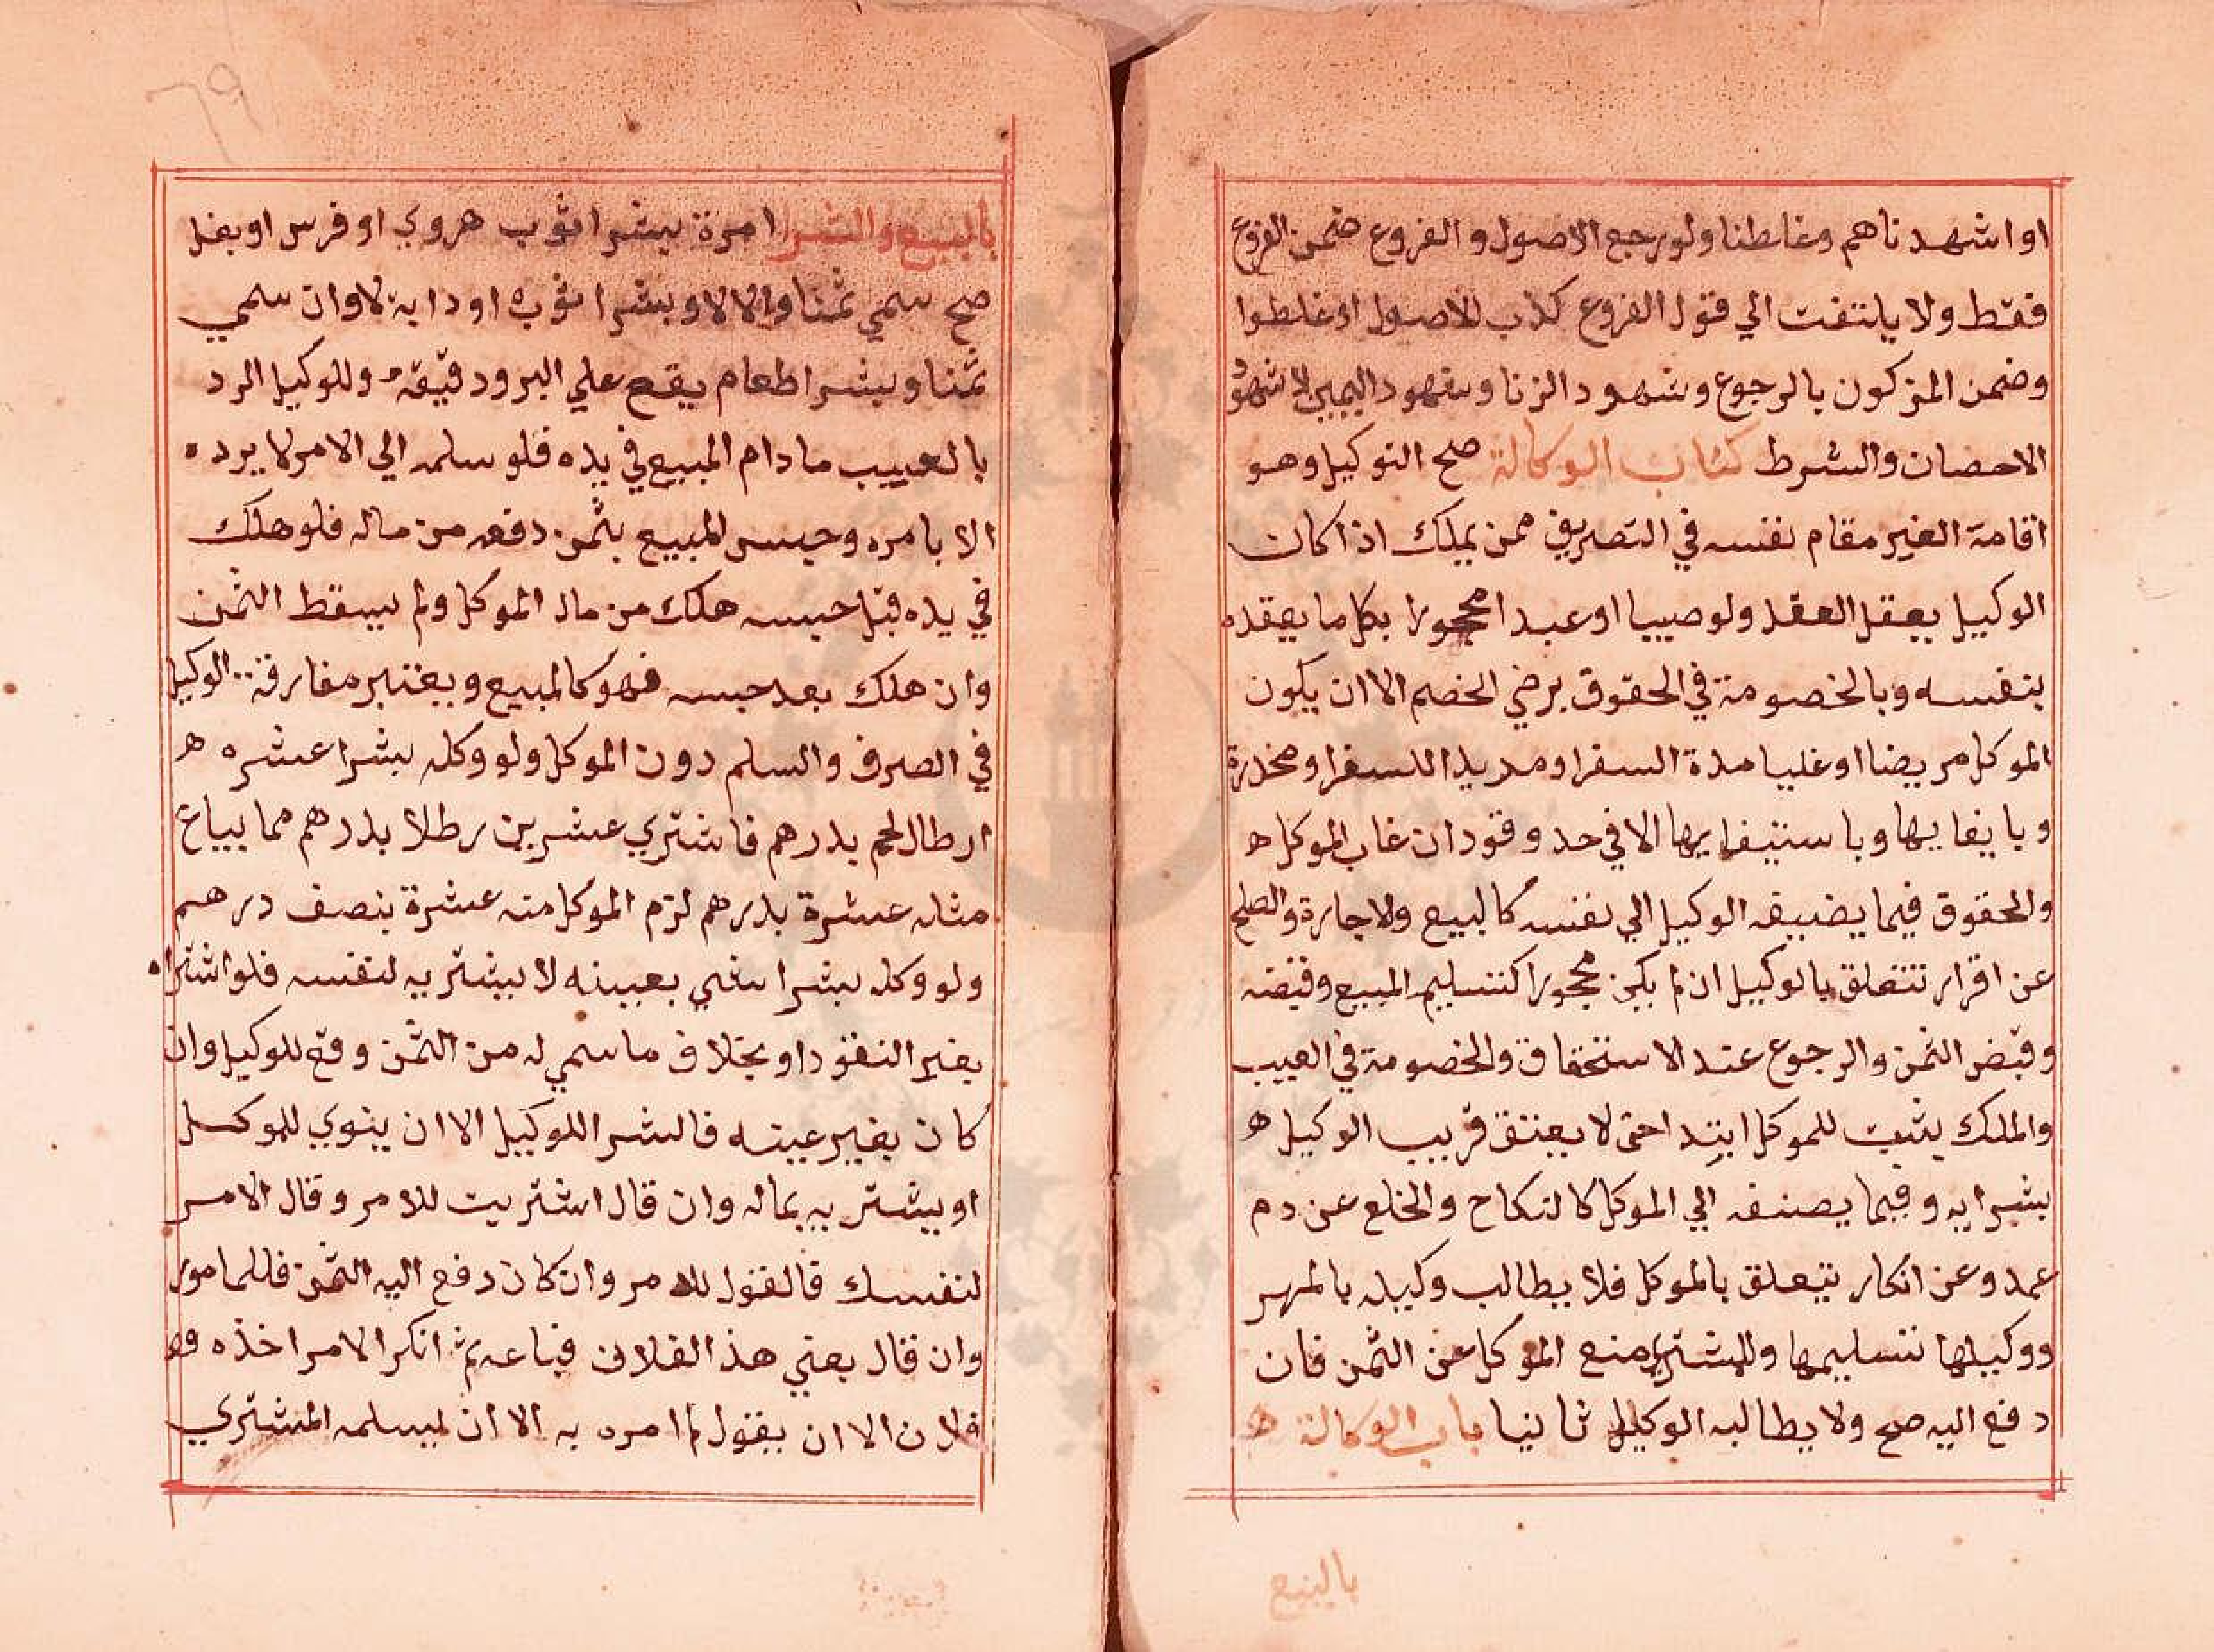 او اشهدناهم وغلطنا ولو رجع الاصول والفروع ضمن الفروع
فقط ولا يلتفت الي قول الفروع كذب الاصول او غلطوا
وضمن المزكون بالرجوع وشهود الزنا وشهود اليمين لا شهود
الاحصان والشرط كتاب الوكالة صح التوكيل وهو
اقامة الغير مقام نفسه في التصريف ممن يملك اذا كان
الوكيل يعقل العقد ولو صبيا او عبدا محجورا بكل ما يعقده
بنفسه وبالخصومة في الحقوق برضي الخصم الا ان يكون
الموكل مريضا او غايبا مدة السفر او مريدا للسفر او مخدرة
وبايفايها وباستيفايها الا في حد وقود ان غاب الموكل ه
والحقوق فيما يضيفه الوكيل الي نفسه كالبيع ولاجارة والصلح
عن اقرار تتعلق بالوكيل ان لم يكن محجورا كتسليم المبيع وقبضه
وقبض الثمن والرجوع عند الاستحقاق والخصومة في العيب
والملك يثبت للموكل ابتدا حتى لا يعتق قريب الوكيل ه
بشرايه وفيما يصنفه الي الموكل كالنكاح والخلع عن دم
عمد وعن انكار يتعلق بالموكل فلا يطالب وكيله بالمهر
ووكيلها بتسليمها وللمشتري منع الموكل عن الثمن فان
دفع اليه صح ولا يطالبه الوكيل ثانيا باب الوكالة ه
بالبيع
بالبيع والشرا امرة بشرا ثوب هروي او فرس او بغل
صح سمي ثمنا والا لا وبشرا ثوب او دابة لا وان سمي
ثمنا وبشرا طعام يقع علي البر ودقيقه وللوكيل الرد
بالعيب مادام المبيع في يده فلو سلمه الي الامر لا يرده
الا بامره وحبس المبيع بثمن دفعه من ماله فلو هلك
في يده قبل حبسه هلك من مال الموكل ولم يسقط الثمن
وان هلك بعد حبسه فهو كالمبيع ويعتبر مفارقة الوكيل
في الصرف والسلم دون الموكل ولو وكله بشرا عشره ه
ارطال لحم بدرهم فاشتري عشرين رطلا بدرهم مما يباع
مثله عشرة بدرهم لزم الموكل منه عشرة بنصف درهم
ولو وكله بشرا شي بعينه لا يشتريه لنفسه فلو اشتراه
بغير النقود او بخلاف ما سمي له من الثمن وقع للوكيل وان
كان بغير عينه فالشرا للوكيل الا ان ينوي للموكل
او يشتريه بماله وان قال اشتريت للامر وقال الامر
لنفسك فالقول للامر وان كان دفع اليه الثمن فللمامور
وان قال بعني هذا لفلان فباعه ثم انكر الامر اخذه
فلان الا ان يقول لم امره به الا ان يسلمه المشتري